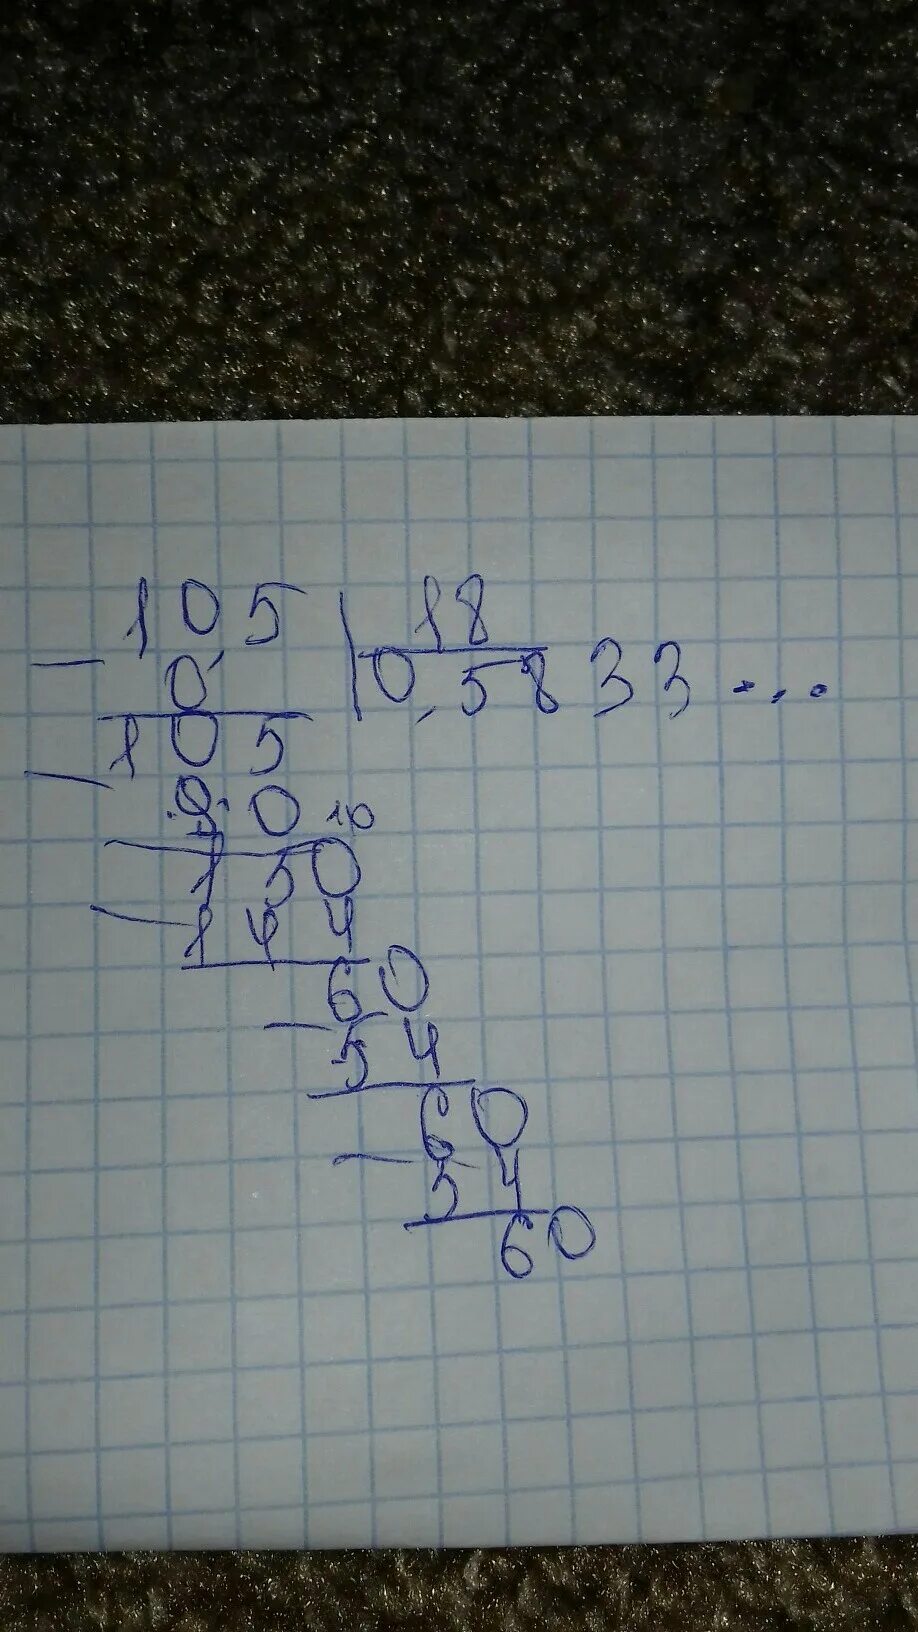 105 18
0, 0,5833...
105
90 10
150
144
60
54
60
54
60